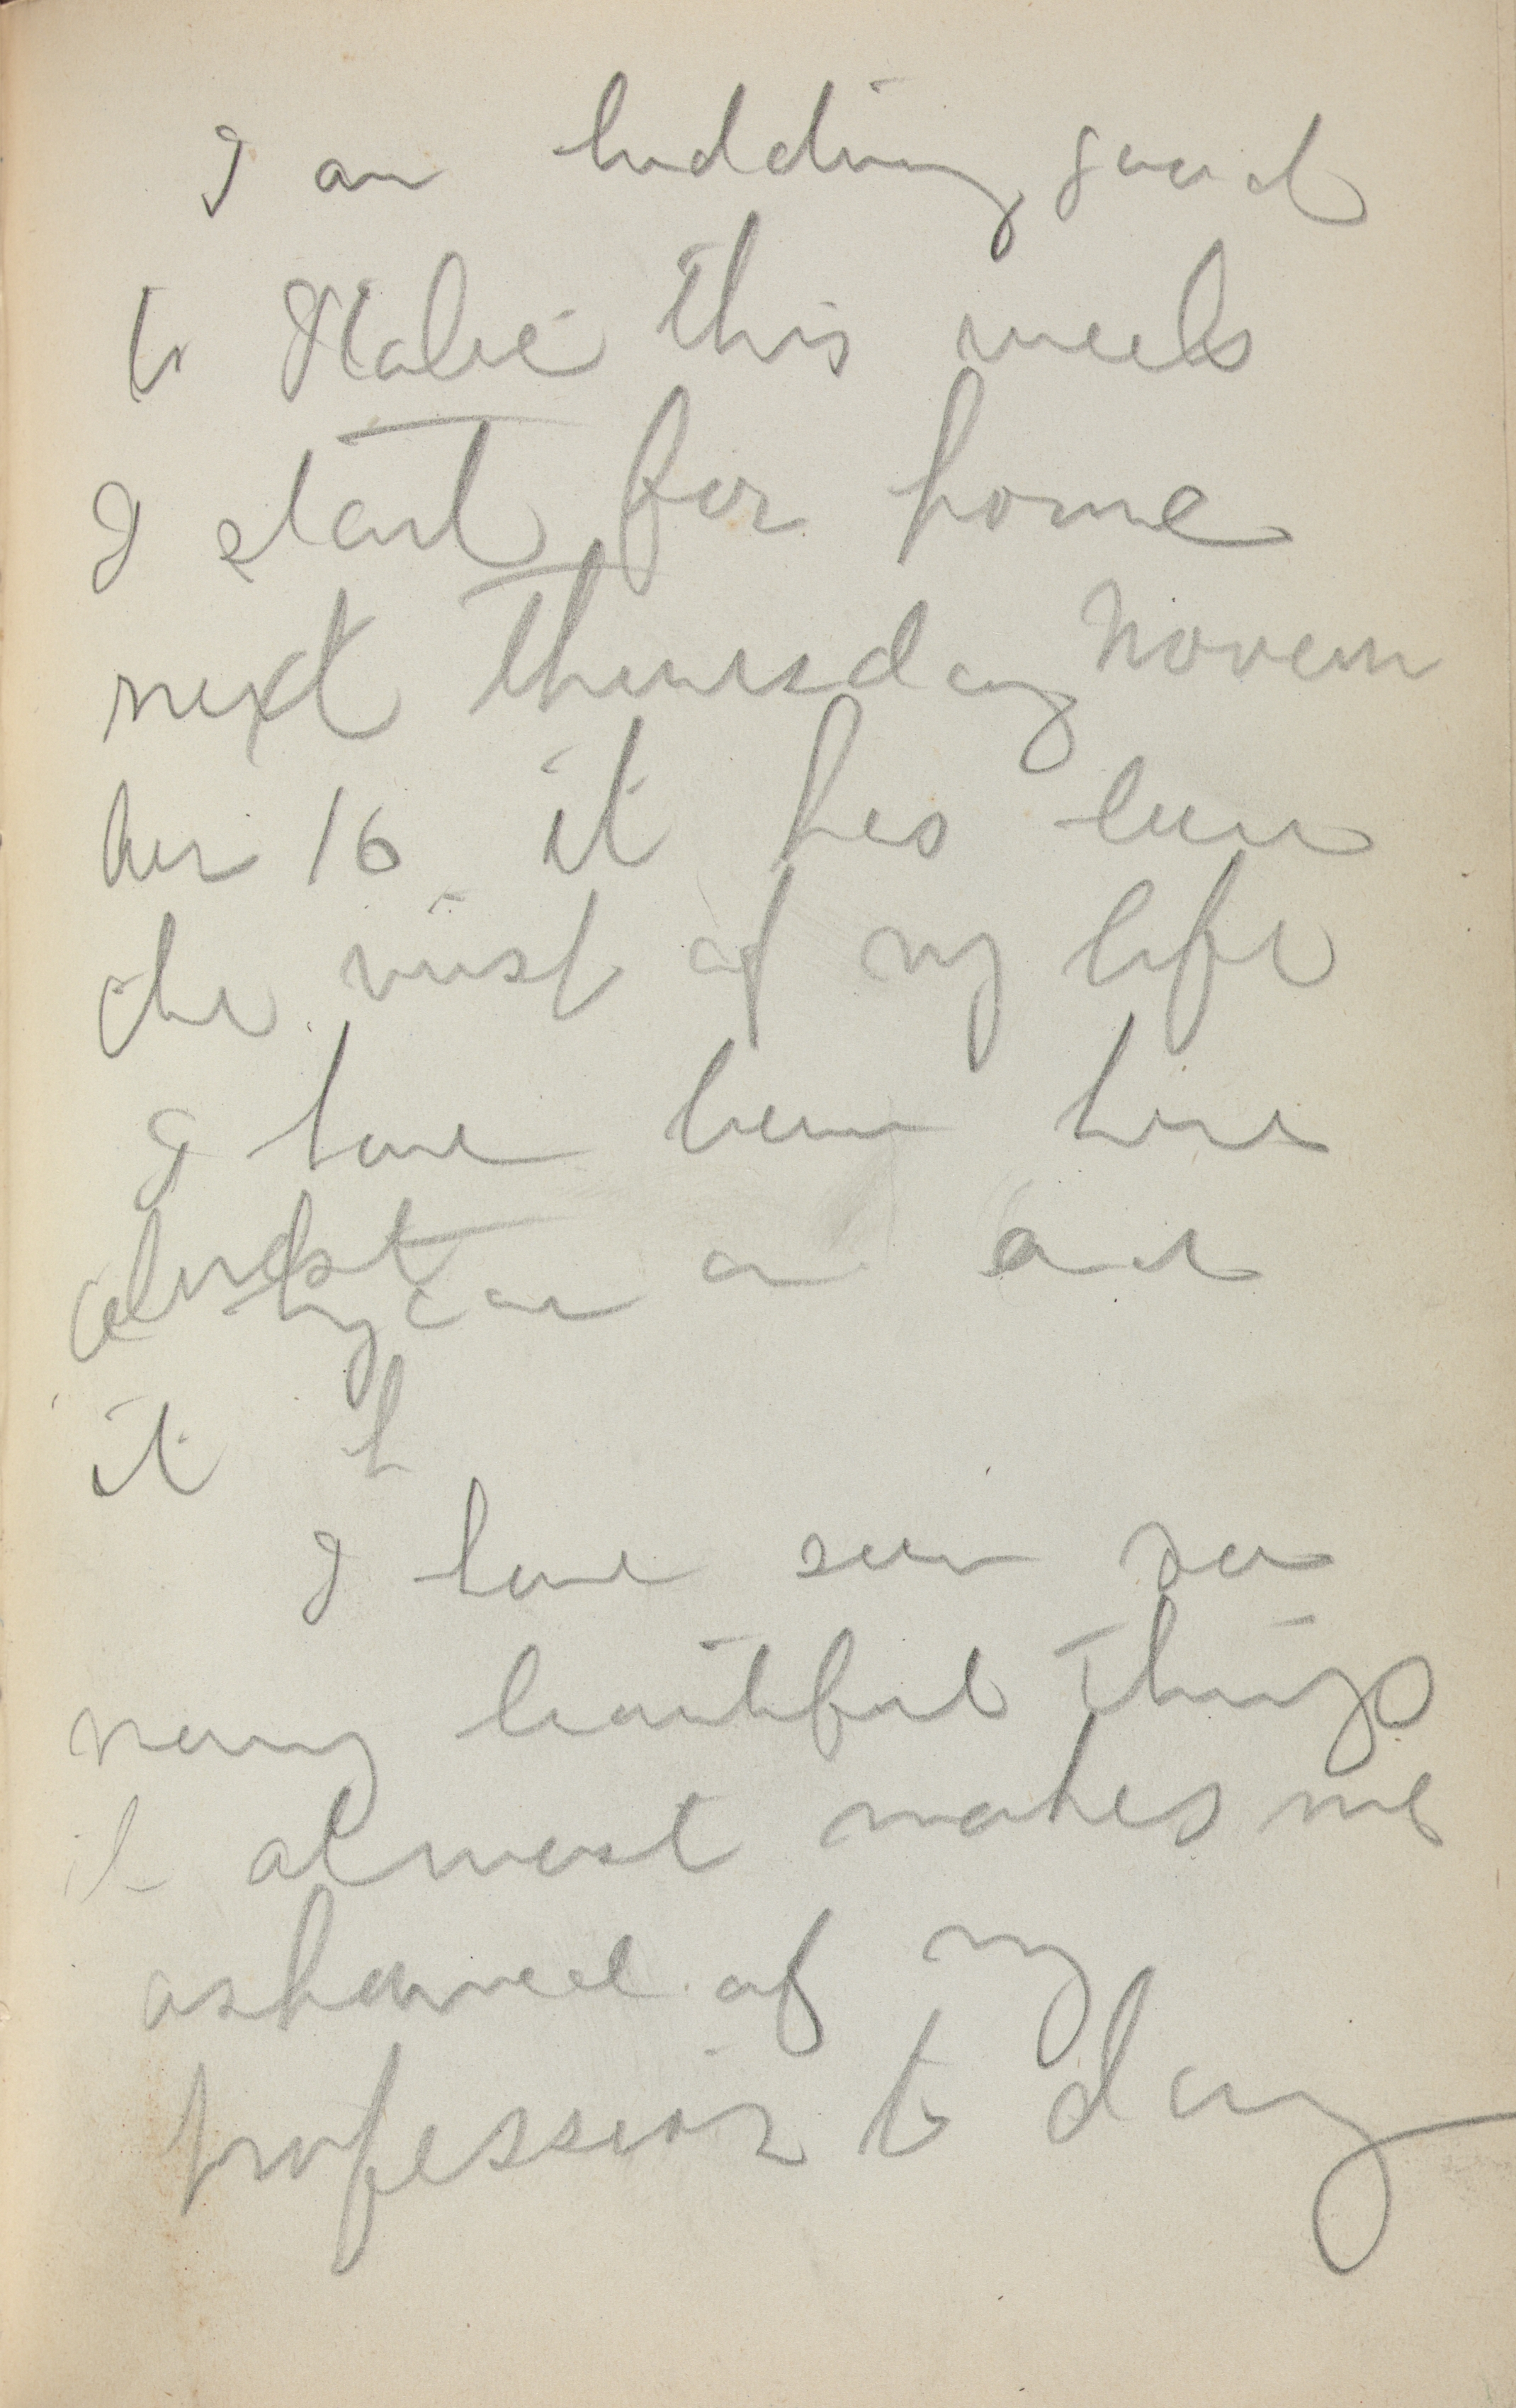 I am bidding good
to Italie this week
I start for home
next Thursday Novem
ber 16 it has been
the visit of my life
I have been here
almost
it h
I have seen so
many beautiful things
it almost makes me
ashamed of my
profession to day